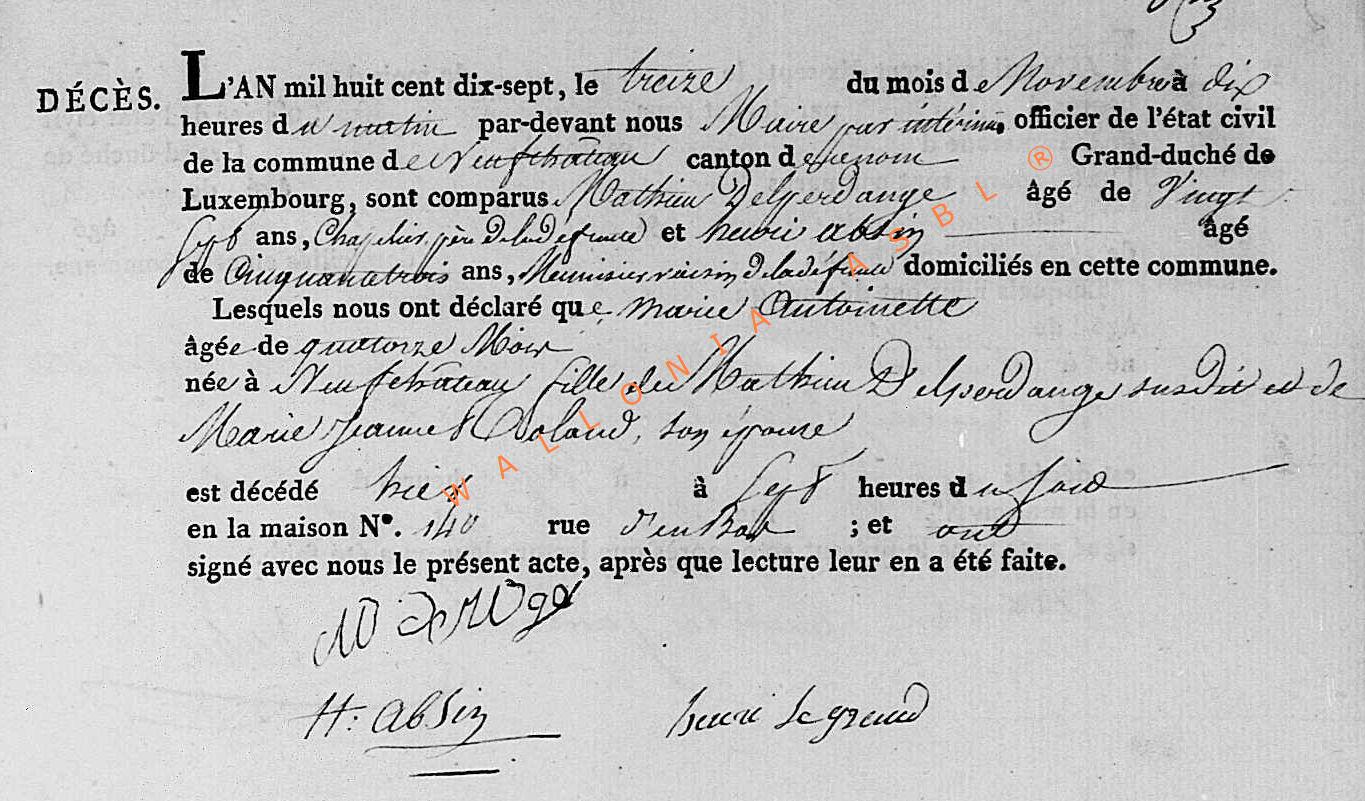 DÉCÈS. L'AN mil huit cent dix-sept, le treize du mois de Novembre à dix
heures du matin par-devant nous Maire par intérim, officier de l'état civil
de la commune de Neufchâteau canton de Grand-duché de
Luxembourg, sont comparus Mathieu Delperdange âgé de Vingt
sept ans, Chapelier, père de la défunte et henri absin âgé
de Cinquante trois ans, Meunisier voisin de la défunte domiciliés en cette commune.
Lesquels nous ont déclaré que, marie Antoinette
âgée de quatorze Mois
née à Neufchâteau fille de Mathieu Delperdange susdit et de
Marie Jeanne Roland, son épouse
est décédé hier à sept heures du soir
en la maison N°. 140 rue d'en Bas ; et ont
signé avec nous le présent acte, après que lecture leur en a été faite.
H: absin henri Legrand
WALLONIA ASBL ®